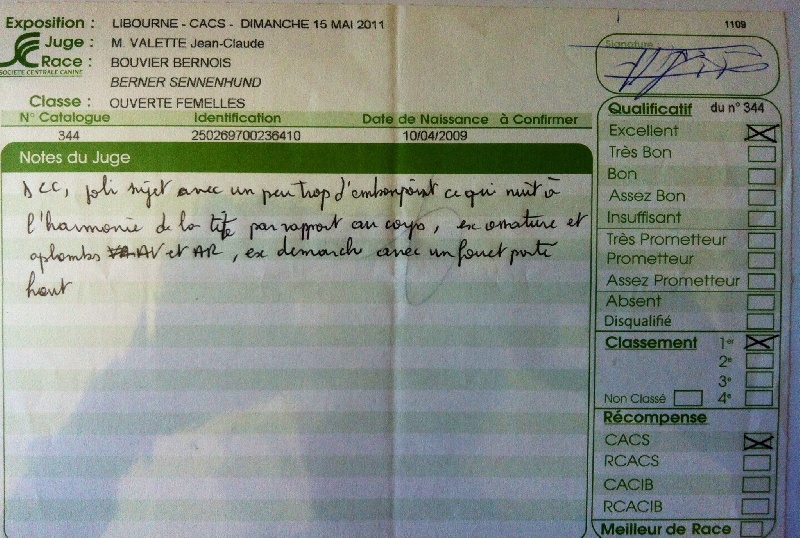 Exposition : LIBOURNE - CACS - DIMANCHE 15 MAI 2011
1109
Juge : M. VALETTE Jean-Claude
Race : BOUVIER BERNOIS
SOCIETE CENTRALE CANINE
BERNER SENNENHUND
Classe : OUVERTE FEMELLES
Signature :
N° Catalogue Identification Date de Naissance à Confirmer
344 250269700236410 10/04/2009
Notes du Juge
joli sujet avec un peu trop d'embonpoint ce qui nuit à
l'harmonie de la tête par rapport au corps, ex ossature et
aplombs AV et AR, ex demarch avec un fouet porté
haut
Qualificatif du n° 344
Excellent
Très Bon
Bon
Assez Bon
Insuffisant
Très Prometteur
Prometteur
Assez Prometteur
Absent
Disqualifié
Classement 1er
2e
3e
Non Classé 4e
Récompense
CACS
RCACS
CACIB
RCACIB
Meilleur de Race